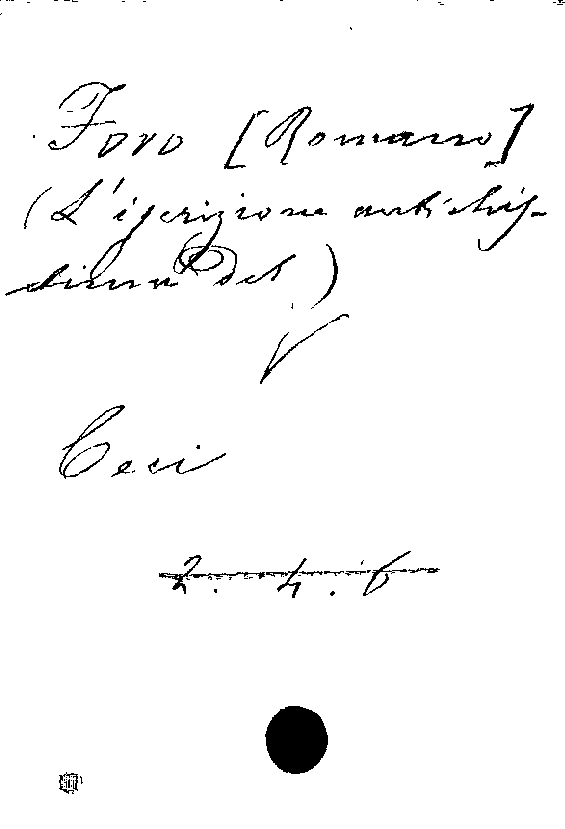 Foro [Romano]
(L'iscrizione antichis-
sima del)
Ceci
2. 4. 6